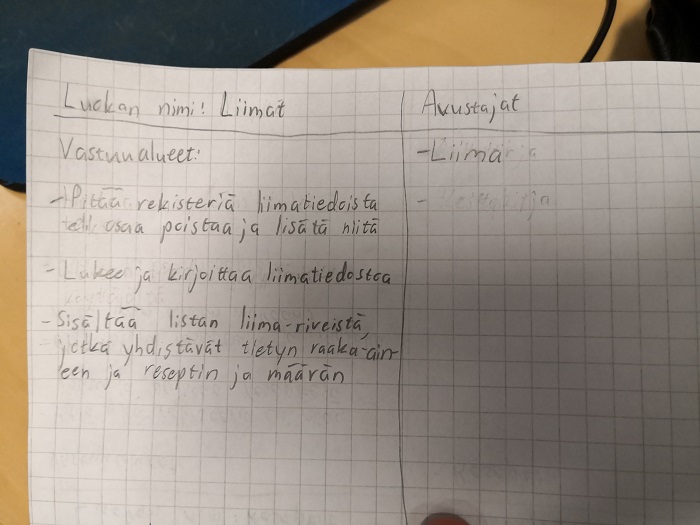 Luokan nimi: Liimat
Avustajat
Vastuualueet:
-Liima
- Pitää rekisteriä liimatiedoista
osaa poistaa ja lisätä niitä
- Lukee ja kirjoittaa liimatiedostoa
- Sisältää listan liima-riveistä,
jotka yhdistävät tietyn raaka-ain-
een ja reseptin ja määrän